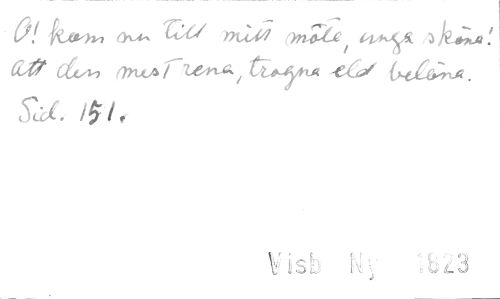 O! kom nu till mitt möte, unga sköna!
att den mest rena, trogna eld belöna.
Sid. 151.
Visb Ny 1823